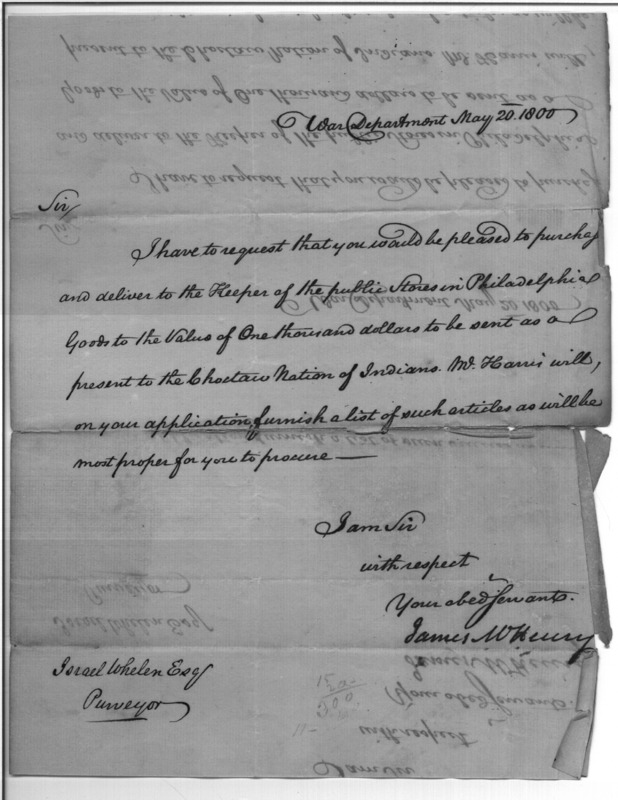 War Department May 20. 1800
Sir,
I have to request that you would be pleased to purchase
and deliver to the Keeper of the public Stores in Philadelphia
Goods to the Value of One thousand dollars to be sent as a
present to the Choctaw Nation of Indians. Mr. Harris will,
on your application, furnish a list of such articles as will be
most proper for you to procure —
I am Sir
with respect
Your obed. Servant.
James McHenry
Israel Whelen Esq
Purveyor